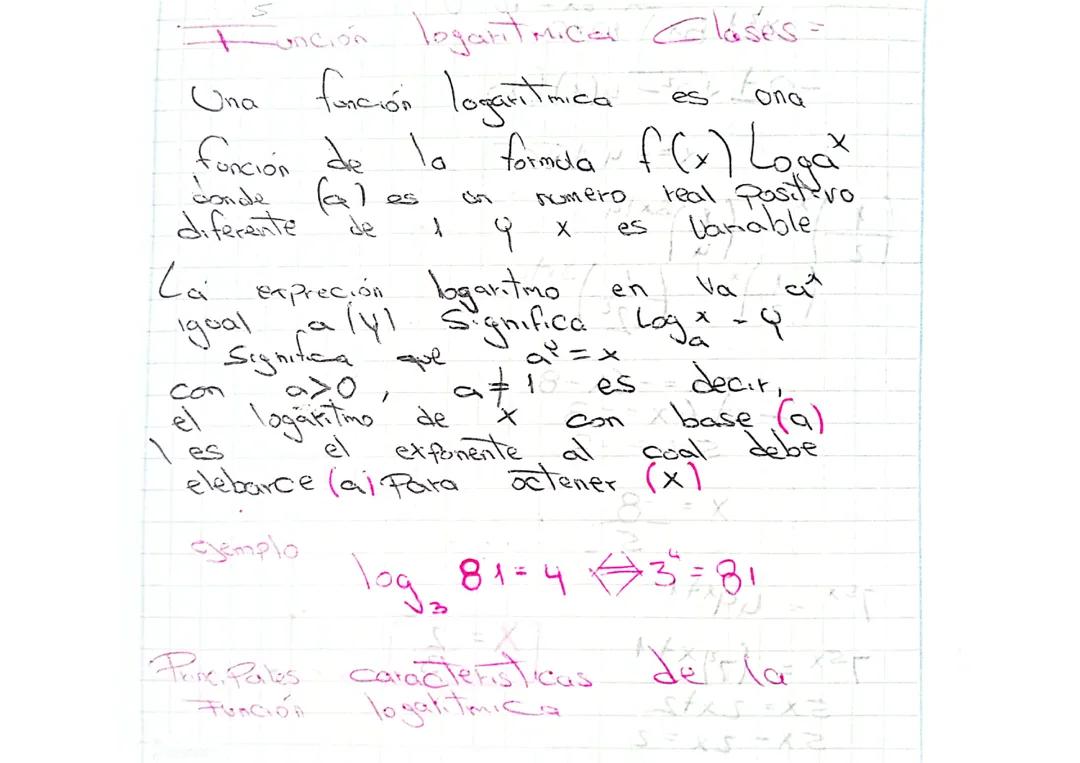 Función logaritmica Clases =
Una función logaritmica es una
función de la formula f(x) Loga^x
donde (a) es un numero real positivo
diferente de 1 y x es variable
La expreción logaritmo en va a^x
igual a (y) significa Log_a x - y
significa que a^y = x
con a>0, a≠1 es decir,
el logaritmo de x con base (a)
es el exponente al cual debe
elebarce (a) Para octener (x)
ejemplo
log_3 81 = 4 ⇔ 3^4 = 81
Principales caracteristicas de la
Función logaritmica